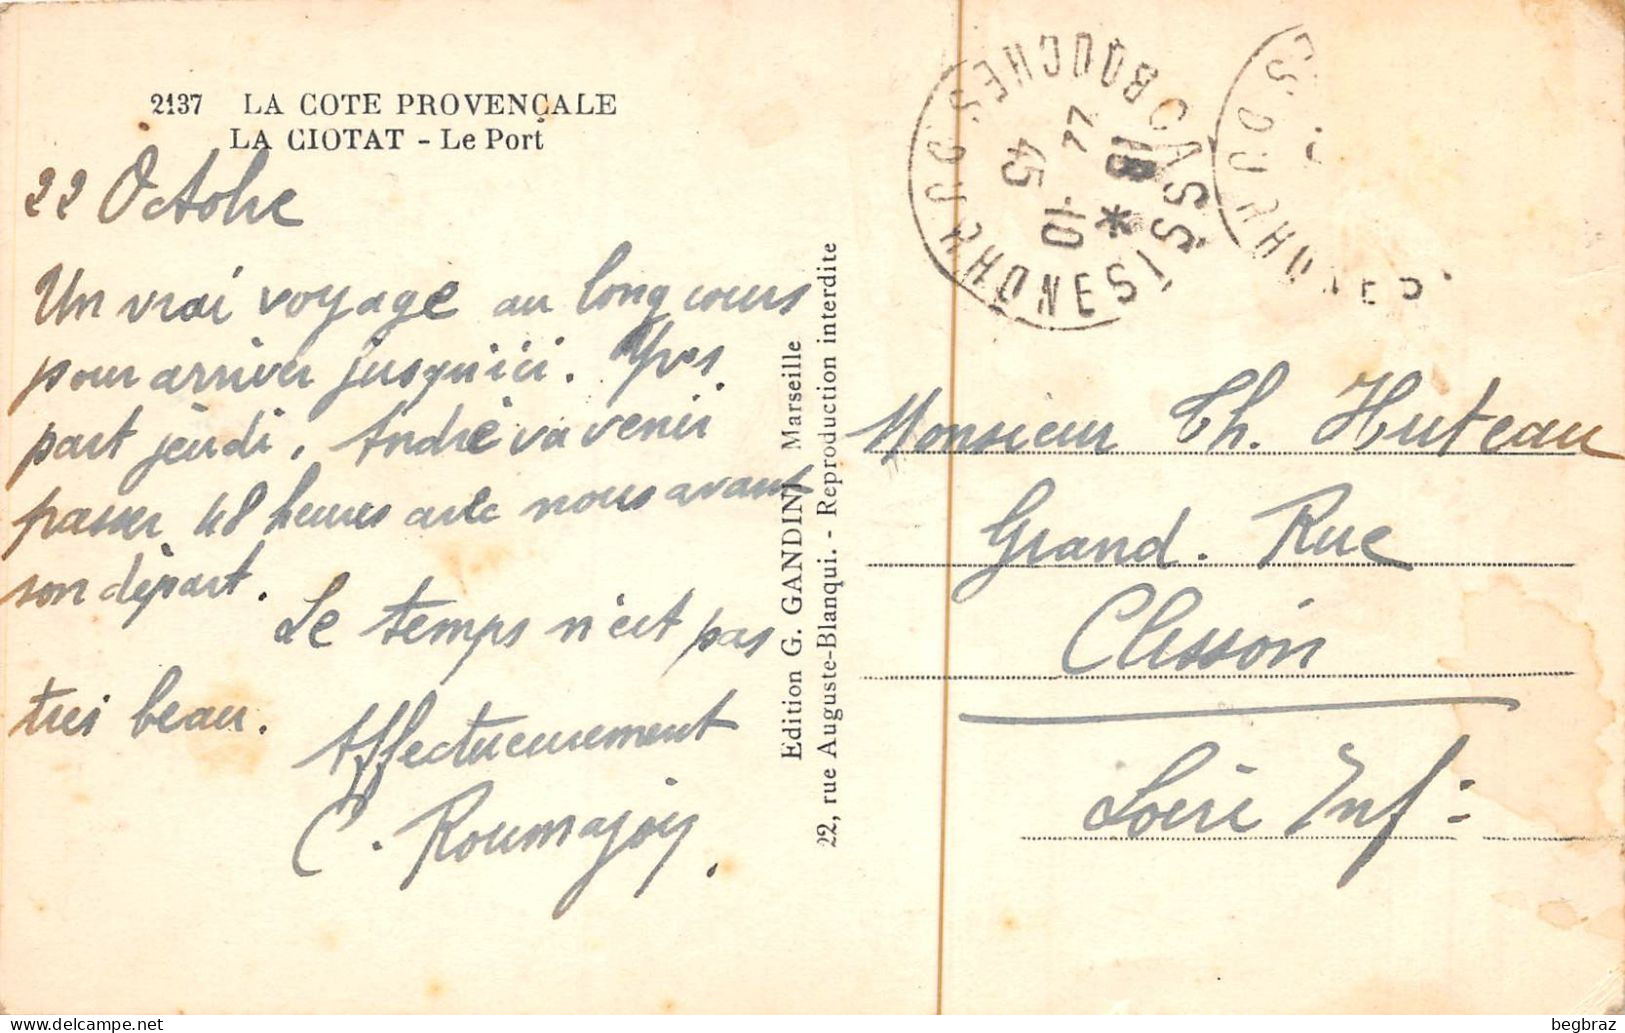 2137 LA COTE PROVENÇALE
LA CIOTAT - Le Port
22 Octobre
Un vrai voyage au long cours
pour arriver jusqu'ici. Yves
part jeudi. André va venir
passer 48 heures avec nous avant
son départ.
Le temps n'est pas
très beau.
Affectueusement
C. Roumajoy.
Edition G. GANDINI Marseille
22, rue Auguste-Blanqui. - Reproduction interdite
CASSIS
BOUCHES DU RHONE
18 *
22 -10
45
ES DU RHONES
Monsieur Ch. Huteau
Grand. Rue
Clisson
Loire Inf:
begbraz